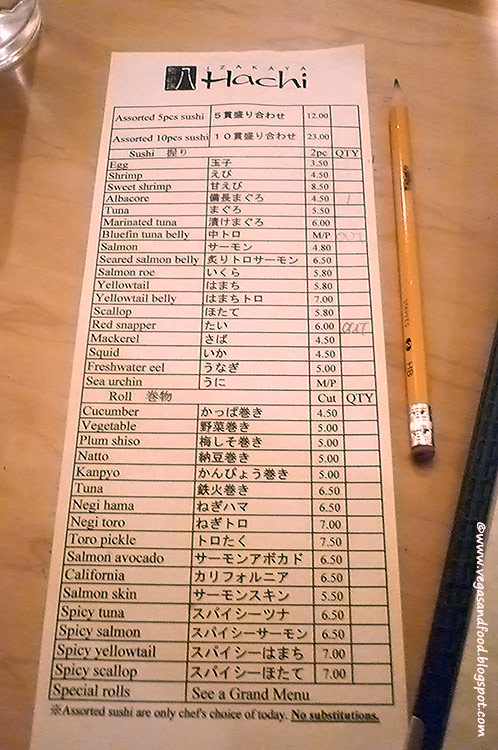 IZAKAYA
八 Hachi
Assorted 5pcs sushi ５貫盛り合わせ 12.00
Assorted 10pcs sushi １０貫盛り合わせ 23.00
Sushi 握り 2pc QTY
Egg 玉子 3.50
Shrimp えび 4.50
Sweet shrimp 甘えび 8.50
Albacore 備長まぐろ 4.50 1
Tuna まぐろ 5.50
Marinated tuna 漬けまぐろ 6.00
Bluefin tuna belly 中トロ M/P out
Salmon サーモン 4.80
Seared salmon belly 炙りトロサーモン 6.50
Salmon roe いくら 5.80
Yellowtail はまち 5.80
Yellowtail belly はまちトロ 7.00
Scallop ほたて 5.80
Red snapper たい 6.00 out
Mackerel さば 4.50
Squid いか 4.50
Freshwater eel うなぎ 5.00
Sea urchin うに M/P
Roll 巻物 Cut QTY
Cucumber かっぱ巻き 4.50
Vegetable 野菜巻き 5.00
Plum shiso 梅しそ巻き 5.00
Natto 納豆巻き 5.00
Kanpyo かんぴょう巻き 5.00
Tuna 鉄火巻き 6.50
Negi hama ねぎハマ 6.50
Negi toro ねぎトロ 7.00
Toro pickle トロたく 7.50
Salmon avocado サーモンアボカド 6.50
California カリフォルニア 6.50
Salmon skin サーモンスキン 5.50
Spicy tuna スパイシーツナ 6.50
Spicy salmon スパイシーサーモン 6.50
Spicy yellowtail スパイシーはまち 7.00
Spicy scallop スパイシーほたて 7.00
Special rolls See a Grand Menu
※Assorted sushi are only chef's choice of today. No substitutions.
HB
©www.vegasandfood.blogspot.com